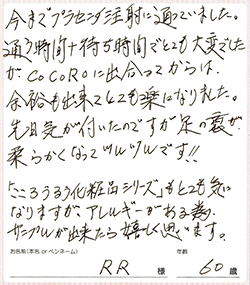 今までプラセンタ注射に通っていました。
通う時間+待ち時間でとても大変でした
がCoCoRoに出会ってからは、
余裕も出来てとても楽になりました。
先日気が付いたのですが足の裏が
柔らかくなってツルツルです!!
「こころうるう化粧品シリーズ」もとても気に
なりますが、アレルギーがある為、
サンプルが出来たら嬉しく思います。
お名前(本名 or ペンネーム) 年齢
RR 様 60歳